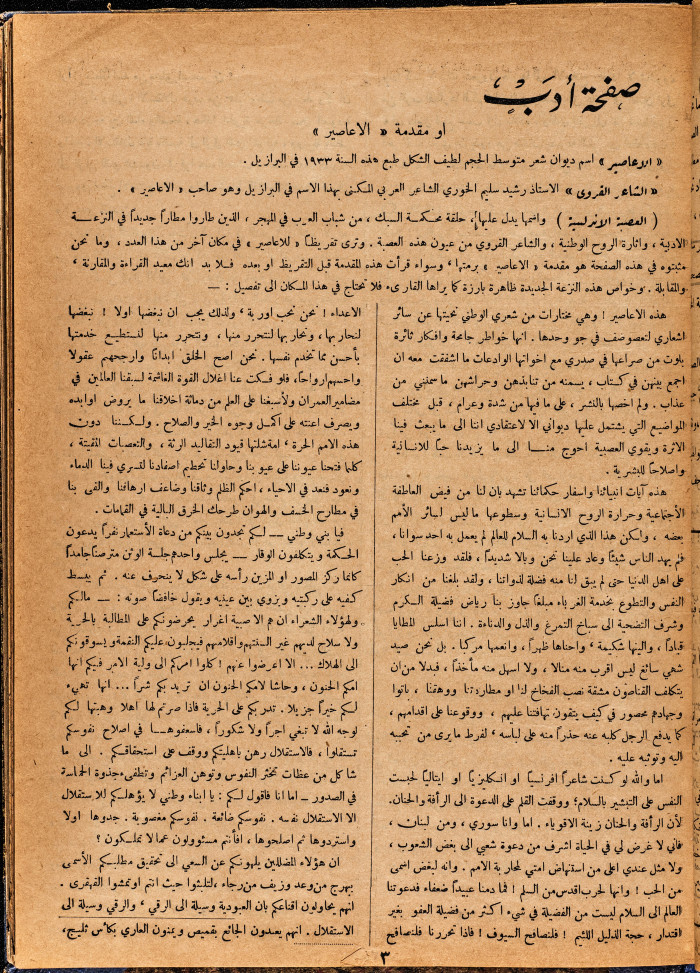 صفحة أدب
او مقدمة « الاعاصير »
« الاعاصير » اسم ديوان شعر متوسط الحجم لطيف الشكل طبع هذه السنة ١٩٣٣ في البرازيل .
« الشاعر القروي » الاستاذ رشيد سليم الخوري الشاعر العربي المكنى بهذا الاسم في البرازيل وهو صاحب « الاعاصير » .
( العصبة الاندلسية ) واسمها يدل عليها، حلقة محكمة السبك ، من شباب العرب في المهجر ، الذين طاروا مطاراً جديداً في النزعة
الادبية ، واثارة الروح الوطنية ، والشاعر القروي من عيون هذه العصبة . وترى تقريظاً « للاعاصير » في مكان آخر من هذا العدد ، وما نحن
مثبتوه في هذه الصفحة هو مقدمة « الاعاصير » برمتها ، وسواء قرأت هذه المقدمة قبل التقريظ او بعده فلا بد انك معيد القراءة والمقارنة ،
والمقابلة . وخواص هذه النزعة الجديدة ظاهرة بارزة كما يراها القارىء فلا تحتاج في هذا المكان الى تفصيل : —
هذه الاعاصير ! وهي مختارات من شعري الوطني نحيتها عن سائر
اشعاري لتعصوصف في جو وحدها . انها خواطر جامحة وافكار ثائرة
بلوت من صراعها في صدري مع اخواتها الوادعات ما اشفقت معه ان
اجمع بينهن في كتاب ، يسمنه من تنابذهن وحراشهن ما سمنني من
عذاب . ولم اخصها بالنشر ، على ما فيها من شدة وعرام ، قبل مختلف
المواضيع التي يشتمل عليها ديواني الا لاعتقادي اننا الى ما يبعث فينا
الاثرة ويقوي العصبية احوج منا الى ما يزيدنا حباً للانانية
واصلاحاً للبشرية .
هذه آيات انبيائنا واسفار حكمائنا تشهد بان لنا من فيض العاطفة
الأجتماعية وحرارة الروح الانسانية وسطوعها ما ليس لسائر الأمم
بعضه ، ولكن هذا الذي اردنا به السلام للعالم لم يعمل به احد سوانا ،
فلم يهد الناس شيئاً وعاد علينا نحن وبالا شديداً ، فلقد وزعنا الحب
على اهل الدنيا حتى لم يبق لنا منه فضلة لذواتنا ، ولقد بلغنا من انكار
النفس والتطوع بخدمة الغرباء مبلغاً جاوز بنا رياض فضيلة الكرم
وشرف التضحية الى سباخ التمرغ والذل والدناءة . اننا اسلس المطايا
قياداً ، والينها شكيمة ، واحناها ظهراً ، وانعمها مركبا . بل نحن صيد
شهي سائغ ليس اقرب منه منالا ، ولا اسهل منه مأخذاً ، فبدلا من ان
يتكلف القناصون مشقة نصب الفخاخ لنا او مطاردتنا ووهقنا ، باتوا
وجهادهم محصور في كيف يتقون تهافتنا عليهم ، ووقوعنا على اقدامهم ،
كما يدفع الرجل كلبه عنه حذراً منه على لباسه ، لفرط ما يرى من تحببه
اليه وتوثبه عليه .
اما والله لو كنت شاعراً افرنسياً او انكليزياً او ايتالياً لحبست
النفس على التبشير بالسلام، ووقفت القلم على الدعوة الى الرأفة والحنان.
لأن الرأفة والحنان زينة الاقوياء . اما وانا سوري ، ومن لبنان ،
فاني لا غرض لي في الحياة اشرف من دعوة شعبي الى بغض الشعوب ،
ولا مثل عندي اعلى من استنهاض امتي لمحاربة الامم . وانه لبغض اسمى
من الحب ! وانها لحرب اقدس من السلم ! فما دمنا عبيداً ضعفاء فدعوتنا
العالم الى السلام ليست من الفضيلة في شيء اكثر من فضيلة العفو بغير
اقتدار ، حجة الذليل اللئيم ! فلنصافح السيوف ! فاذا تحررنا فلنصافح
الاعداء ! نحن نحب اوربة ، ولذلك يجب ان نبغضها اولا ! نبغضها
لنحاربها ، ونحاربها لنتحرر منها ، ونتحرر منها لنستطيع خدمتها
بأحسن مما تخدم نفسها . نحن اصح الخلق ابداناً وارجحهم عقولا
واحسهم ارواحاً ، فلو فككت عنا اغلال القوة الغاشمة لسبقنا العالمين في
مضامير العمران ولأسبغنا على العلم من دماثة اخلاقنا ما يروض اوابده
ويصرف اعنته على اكمل وجوه الخير والصلاح . ولكننا دون
هذه الامم الحرة ، امة شلتها قيود التقاليد الرثة ، والتعصبات المقيتة ،
كلما فتحنا عيوننا على عيوبنا وحاولنا تحطيم اصفادنا لتسري فينا الدماء
ونعود فنعد في الاحياء ، احكم الظلم وثاقنا وضاعف ارهاقنا والقى بنا
في مطارح الخسف والهوان طرحك الخرق البالية في القمامات .
فيا بني وطني — لكم تجدون بينكم من دعاة الاستعمار نفراً يدعون
الحكمة ويتكلفون الوقار — يجلس واحدهم جلسة الوثن مترصناً جامداً
كأنما ركز المصور او المزين رأسه على شكل لا ينحرف عنه . ثم يبسط
كفيه على ركبتيه ويزوي بين عينيه ويقول خافضاً صوته : — مالكم
ولهؤلاء الشعراء ان هم الا صبية اغرار يحرضونكم على المطالبة بالحرية
ولا سلاح لديهم غير السنتهم واقلامهم فيجلبون عليكم النقمة ويسوقونكم
الى الهلاك ... الا اعرضوا عنهم ! كلوا امركم الى ولية الامر فيكم انها
امكم الحنون ، وحاشا لامكم الحنون ان تريد بكم شراً ... انها تهيء
لكم خيراً جزيلا . تدربكم على الحرية فاذا صرتم لها اهلا وهبتها لكم
لوجه الله لا تبغي اجراً ولا شكوراً ، فاسعفوها في اصلاح نفوسكم
تستقلوا ، فالاستقلال رهن باهليتكم ووقف على استحقاقكم . الى ما
شاكل من عظات تخثر النفوس وتوهن العزائم وتطفىء جذوة الحماسة
في الصدور — اما انا فاقول لكم : يا ابناء وطني لا يؤهلكم للاستقلال
الا الاستقلال نفسه . نفوسكم ضائعة . نفوسكم مغصوبة . جدوها اولا
واستردوها ثم اصلحوها ، أفأنتم مسؤولون عما لا تملكون ؟
ان هؤلاء المضللين يلهونكم عن السعي الى تحقيق مطلبكم الأسمى
بهرج من وعد وزيف من رجاء ، لتلبثوا حيث انتم او تمشوا القهقرى .
انهم يحاولون اقناعكم بان العبودية وسيلة الى الرقي ، والرقي وسيلة الى
الاستقلال . انهم يعدون الجائع بقميص ويمنون العاري بكأس ثليج،
٣